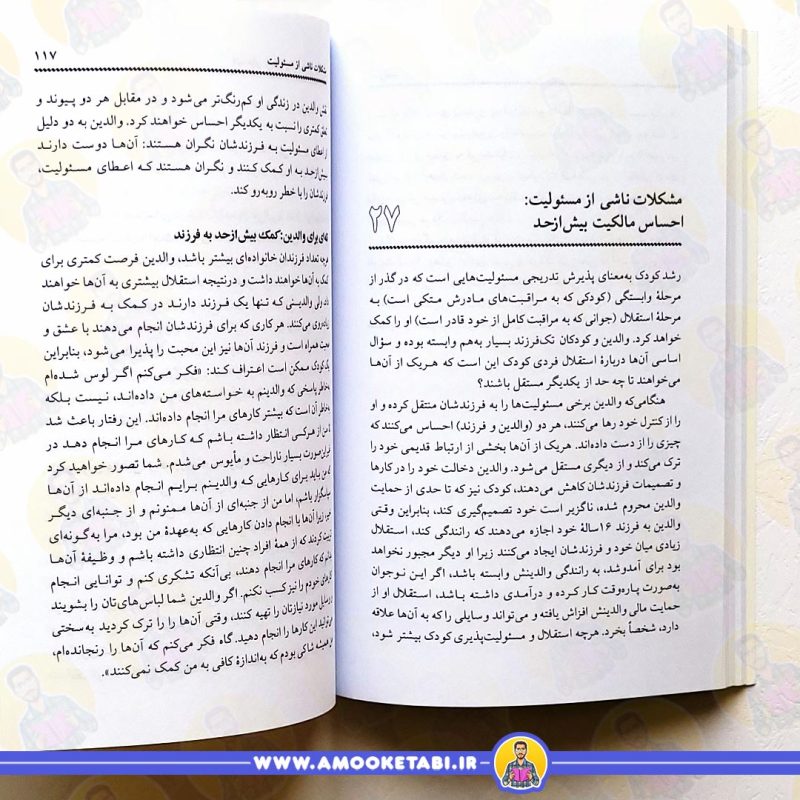 مشکلات ناشی از مسئولیت:
احساس مالکیت بیش‌ازحد
۲۷
رشد کودک به‌معنای پذیرش تدریجی مسئولیت‌هایی است که در گذر از
مرحلهٔ وابستگی (کودکی که به مراقبت‌های مادرش متکی است) به
مرحلهٔ استقلال (جوانی که به مراقبت کامل از خود قادر است) او را کمک
خواهد کرد. والدین و کودکان تک‌فرزند بسیار به‌هم وابسته بوده و سؤال
اساسی آن‌ها دربارهٔ استقلال فردی کودک این است که هریک از آن‌ها
می‌خواهند تا چه حد از یکدیگر مستقل باشند؟
هنگامی‌که والدین برخی مسئولیت‌ها را به فرزندشان منتقل کرده و او
را از کنترل خود رها می‌کنند، هر دو (والدین و فرزند) احساس می‌کنند که
چیزی را از دست داده‌اند. هریک از آن‌ها بخشی از ارتباط قدیمی خود را
ترک می‌کند و از دیگری مستقل می‌شود. والدین دخالت خود را در کارها
و تصمیمات فرزندشان کاهش می‌دهند، کودک نیز که تا حدی از حمایت
والدین محروم شده، ناگزیر است خود تصمیم‌گیری کند، بنابراین وقتی
والدین به فرزند ۱۶سالهٔ خود اجازه می‌دهند که رانندگی کند، استقلال
زیادی میان خود و فرزندشان ایجاد می‌کنند زیرا او دیگر مجبور نخواهد
بود برای آمدوشد، به رانندگی والدینش وابسته باشد، اگر این نوجوان
به‌صورت پاره‌وقت کار کرده و درآمدی داشته باشد، استقلال او از
حمایت مالی والدینش افزایش یافته و می‌تواند وسایلی را که به آن‌ها علاقه
دارد، شخصاً بخرد. هرچه استقلال و مسئولیت‌پذیری کودک بیشتر شود،
مشکلات ناشی از مسئولیت
۱۱۷
نقش والدین در زندگی او کم‌رنگ‌تر می‌شود و در مقابل هر دو پیوند و
تعلق کمتری را نسبت به یکدیگر احساس خواهند کرد. والدین به دو دلیل
از اعطای مسئولیت به فرزندشان نگران هستند: آن‌ها دوست دارند
بیش‌ازحد به او کمک کنند و نگران هستند که اعطای مسئولیت،
فرزندشان را با خطر روبه‌رو کند.
برای والدین: کمک بیش‌ازحد به فرزند
هرچه تعداد فرزندان خانواده‌ای بیشتر باشد، والدین فرصت کمتری برای
کمک به آن‌ها خواهند داشت و درنتیجه استقلال بیشتری به آن‌ها خواهند
داد، ولی والدینی که تنها یک فرزند دارند در کمک به فرزندشان
زیاده‌روی می‌کنند. هر کاری که برای فرزندشان انجام می‌دهند با عشق و
محبت همراه است و فرزند آن‌ها نیز این محبت را پذیرا می‌شود، بنابراین
یک کودک ممکن است اعتراف کند: «فکر می‌کنم اگر لوس شده‌ام
به‌خاطر پاسخی که والدینم به خواسته‌های من داده‌اند، نیست بلکه
به‌خاطر آن است که بیشتر کارهای مرا انجام داده‌اند. این رفتار باعث شد
تا من از هرکسی انتظار داشته باشم که کارهای مرا انجام دهد در
غیراین‌صورت بسیار ناراحت و مأیوس می‌شدم. شما تصور خواهید کرد
که من باید برای کارهایی که والدینم برایم انجام داده‌اند از آن‌ها
سپاسگزار باشم، اما من از جنبه‌ای از آن‌ها ممنونم و از جنبه‌ای دیگر
زیرا آن‌ها با انجام دادن کارهایی که به‌عهدهٔ من بود، مرا به‌گونه‌ای
تربیت کردند که از همهٔ افراد چنین انتظاری داشته باشم و وظیفهٔ آن‌ها
که کارهای مرا انجام دهند، بی‌آنکه تشکری کنم و توانایی انجام
کارهای خودم را نیز کسب نکنم. اگر والدین شما لباس‌های‌تان را بشویند
و وسایل مورد نیازتان را تهیه کنند، وقتی آن‌ها را ترک کردید به‌سختی
می‌توانید این کارها را انجام دهید. گاه فکر می‌کنم که آن‌ها را رنجانده‌ام،
من همیشه شاکی بودم که به‌اندازهٔ کافی به من کمک نمی‌کنند».
WWW.AMOOKETABI.IR